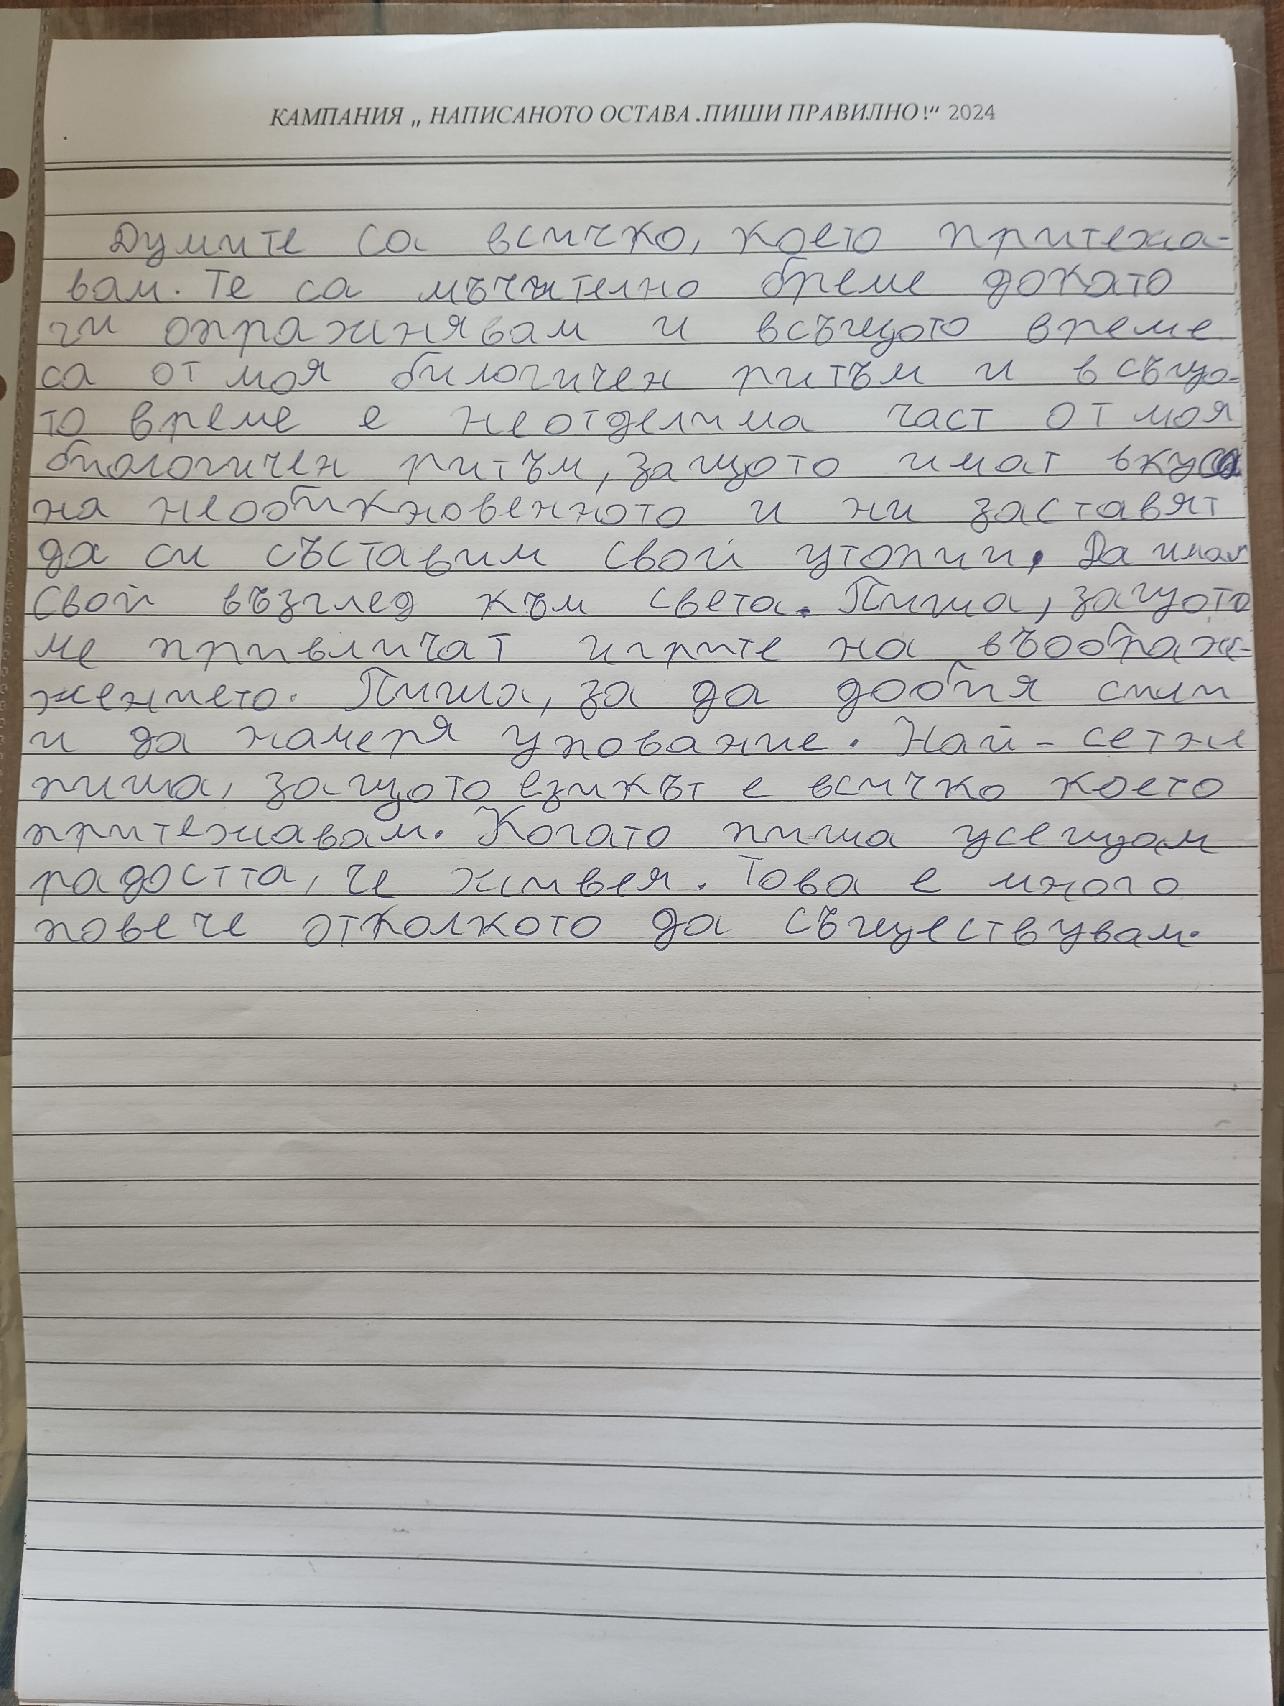 КАМПАНИЯ „ НАПИСАНОТО ОСТАВА .ПИШИ ПРАВИЛНО!“ 2024
Думите са всичко, което притежа-
вам. Те са мъчително бреме докато
ги опражнявам и всъщото време
са от моя билогичен ритъм и в също-
то време е неотделима част от моя
биологичен ритъм, защото имат вкуса
на необикновенното и ни заставят
да си съставим свой утопии. Да имам
свой възглед към света. Пиша, защото
ме привличат игрите на въображ-
жението. Пиша, за да добия сили
и да намеря упование. Най-сетне
пиша, защото езикът е всичко което
притежавам. Когато пиша усещам
радостта, че живея. Това е много
повече отколкото да съществувам.